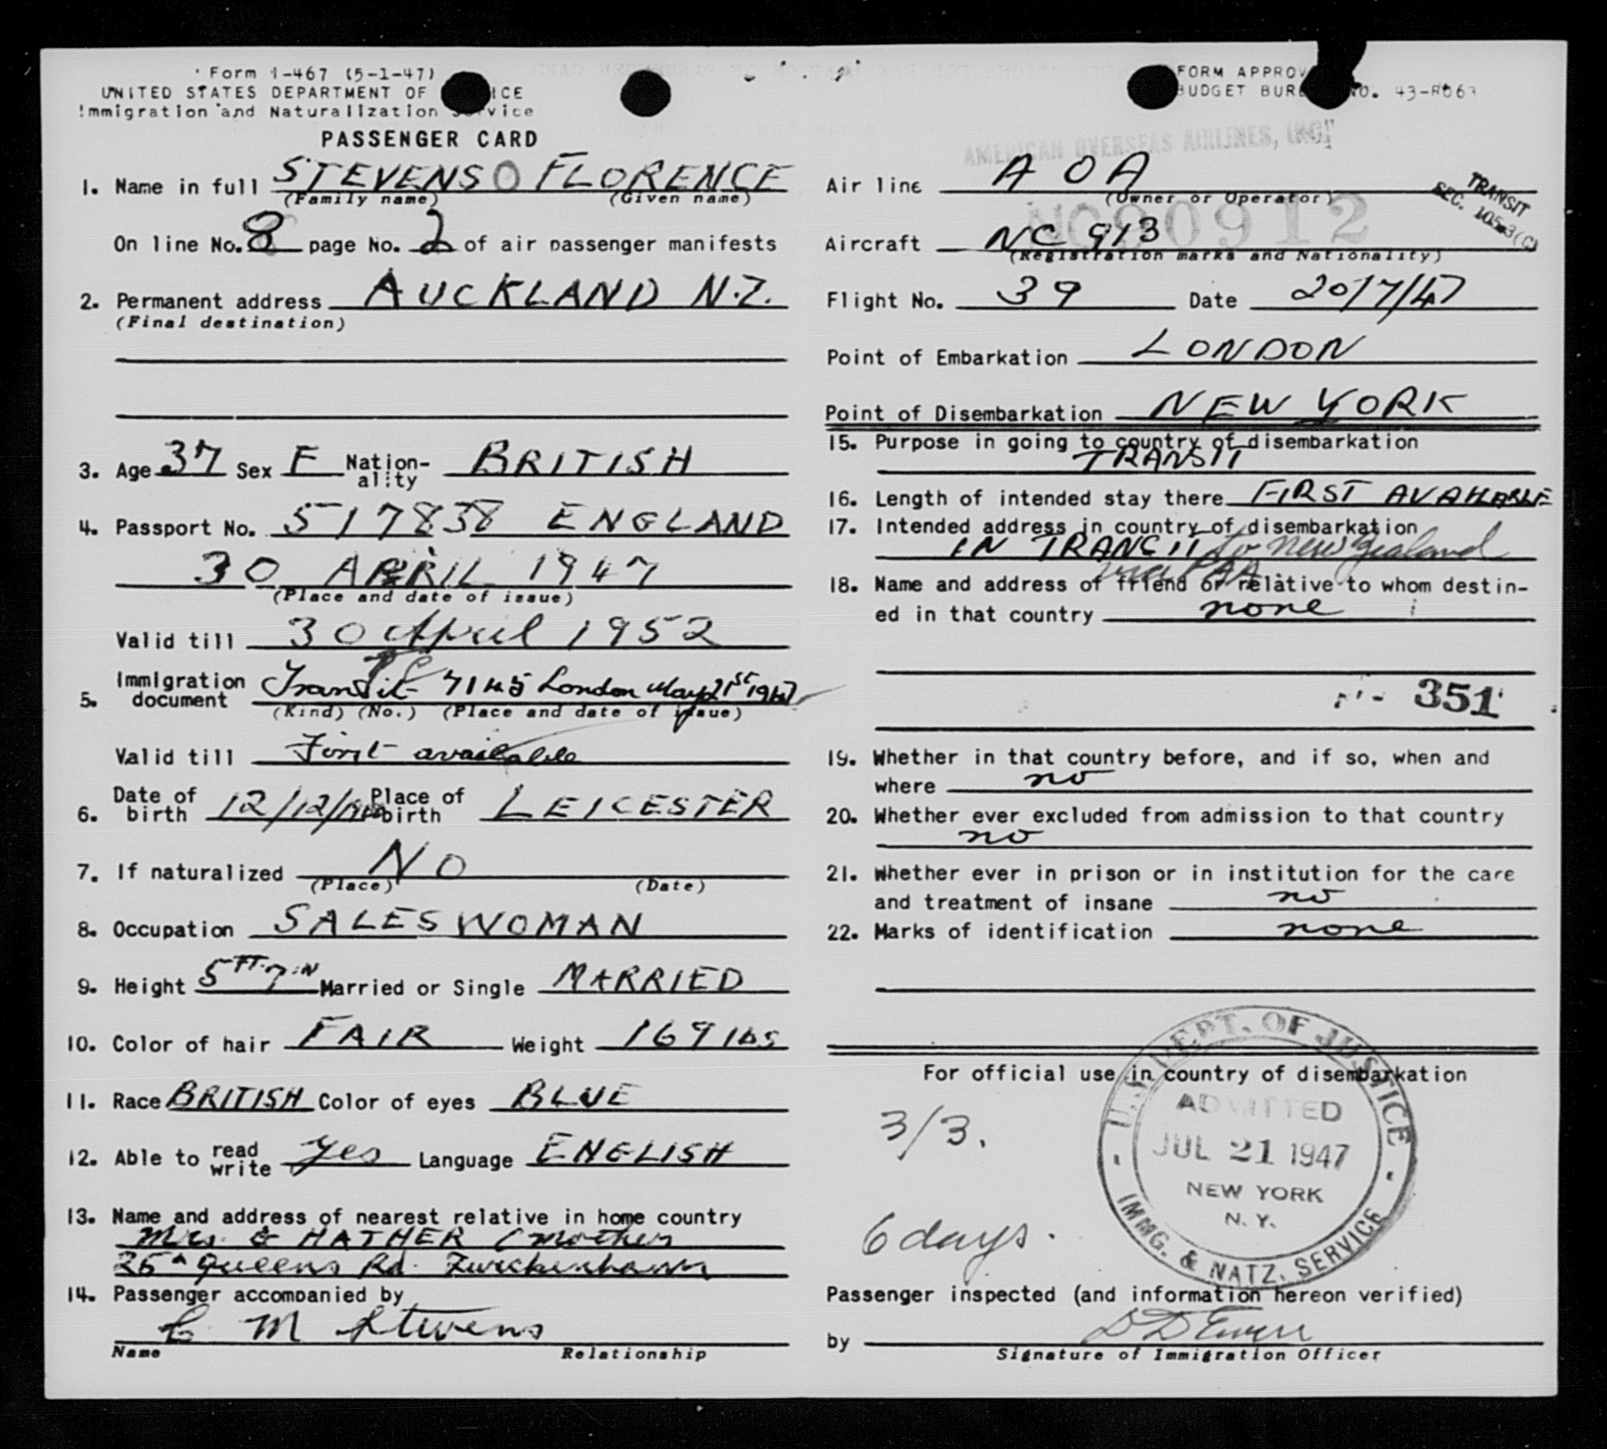 Form 1-467 (5-1-47)
UNITED STATES DEPARTMENT OF ICE
Immigration and Naturalization Service
PASSENGER CARD
1. Name in full STEVENS FLORENCE
(Family name) (Given name)
On line No. 8 page No. 2 of air passenger manifests
2. Permanent address AUCKLAND N.Z.
(Final destination)
3. Age 37 Sex F Nation-ality BRITISH
4. Passport No. 517838 ENGLAND
30 APRIL 1947
(Place and date of issue)
Valid till 30 April 1952
5. Immigration document Transit 7145 London May 21st 1947
(Kind) (No.) (Place and date of issue)
Valid till First available
6. Date of birth 12/12/ Place of birth LEICESTER
7. If naturalized NO
(Place) (Date)
8. Occupation SALESWOMAN
9. Height 5 FT. 7 IN Married or Single MARRIED
10. Color of hair FAIR Weight 169 lbs
11. Race BRITISH Color of eyes BLUE
12. Able to read write yes Language ENGLISH
13. Name and address of nearest relative in home country
Mrs. E HATHER (mother
26A Queens Rd. Twickenham
14. Passenger accompanied by
C M Stevens
Name Relationship
FORM APPROV
BUDGET BURE NO. 43-R063
AMERICAN OVERSEAS AIRLINES, INC.
Air line AOA
(Owner or Operator)
TRANSIT
SEC. 105.3(C)
NC90912
Aircraft NC 913
(Registration marks and Nationality)
Flight No. 39 Date 20/7/47
Point of Embarkation LONDON
Point of Disembarkation NEW YORK
15. Purpose in going to country of disembarkation
TRANSIT
16. Length of intended stay there FIRST AVAILABLE
17. Intended address in country of disembarkation
IN TRANCIT to New Zealand
via PAA
18. Name and address of friend or relative to whom destin-
ed in that country none
351
19. Whether in that country before, and if so, when and
where no
20. Whether ever excluded from admission to that country
no
21. Whether ever in prison or in institution for the care
and treatment of insane no
22. Marks of identification none
For official use in country of disembarkation
3/3.
6 days.
U.S. DEPT. OF JUSTICE
ADMITTED
JUL 21 1947
NEW YORK
N. Y.
IMMG. & NATZ. SERVICE
Passenger inspected (and information hereon verified)
by
Signature of Immigration Officer